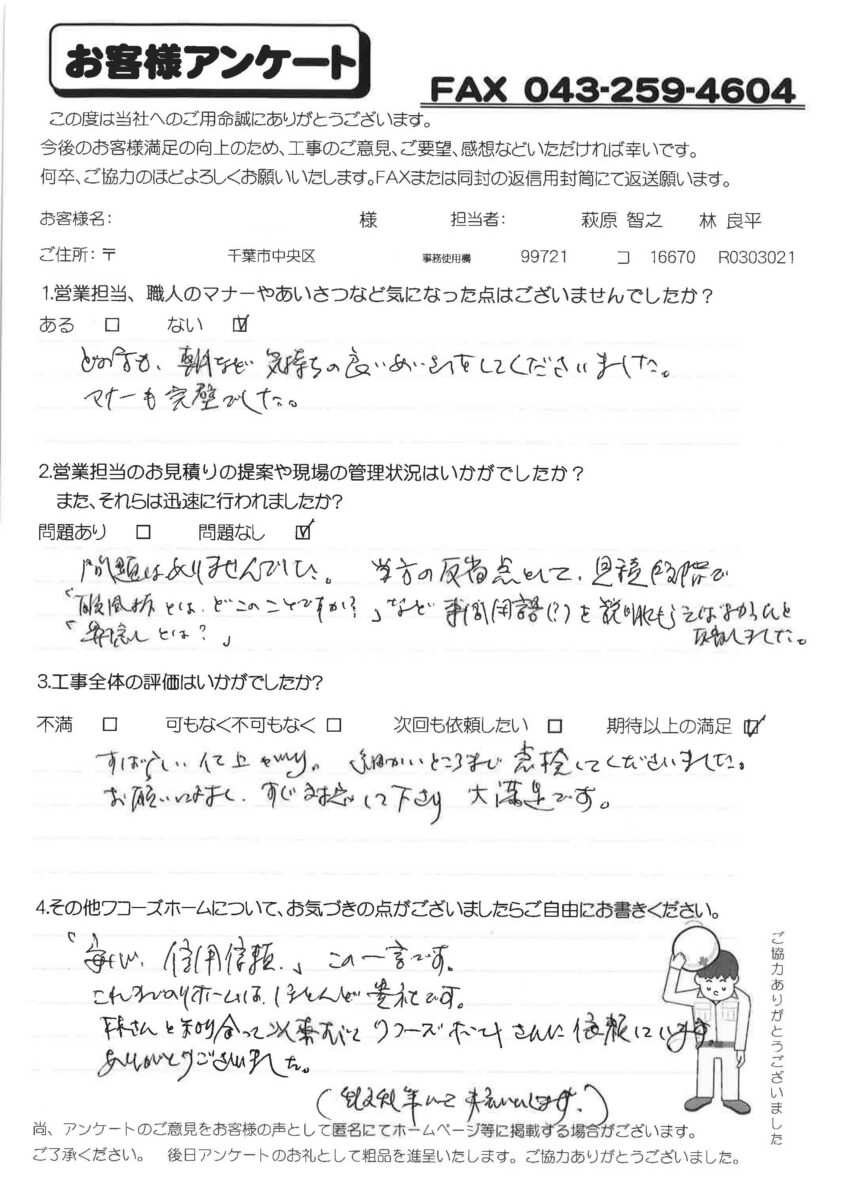 お客様アンケート
FAX 043-259-4604
この度は当社へのご用命誠にありがとうございます。
今後のお客様満足の向上のため、工事のご意見、ご要望、感想などいただければ幸いです。
何卒、ご協力のほどよろしくお願いいたします。FAXまたは同封の返信用封筒にて返送願います。
お客様名: 様 担当者: 萩原 智之 林 良平
ご住所:〒 千葉市中央区 事務使用欄 99721 コ 16670 R0303021
1.営業担当、職人のマナーやあいさつなど気になった点はございませんでしたか?
ある □ ない ☑
どの方も、朝など気持ちの良いあいさつをしてくださいました。
マナーも完璧でした。
2.営業担当のお見積りの提案や現場の管理状況はいかがでしたか?
また、それらは迅速に行われましたか?
問題あり □ 問題なし ☑
問題はありませんでした。 当方の反省点として、見積段階で
「破風板とは、どこのことですか?」など専門用語(?)を説明してもらえばよかったと
「とは?」 反省しました。
3.工事全体の評価はいかがでしたか?
不満 □ 可もなく不可もなく □ 次回も依頼したい □ 期待以上の満足 ☑
すばらしい仕上がり。細かいところまで点検してくださいました。
お願いにはすぐ対応して下さり 大満足です。
4.その他ワコーズホームについて、お気づきの点がございましたらご自由にお書きください。
「安心、信用信頼、」この一言です。
これまでのリホームは、ほとんど貴社です。
林さんと知り合って以来すべてワコーズホームさんに依頼しています。
ありがとうございました。
ご協力ありがとうございました
尚、アンケートのご意見をお客様の声として匿名にてホームページ等に掲載する場合がございます。
ご了承ください。 後日アンケートのお礼として粗品を進呈いたします。ご協力ありがとうございました。